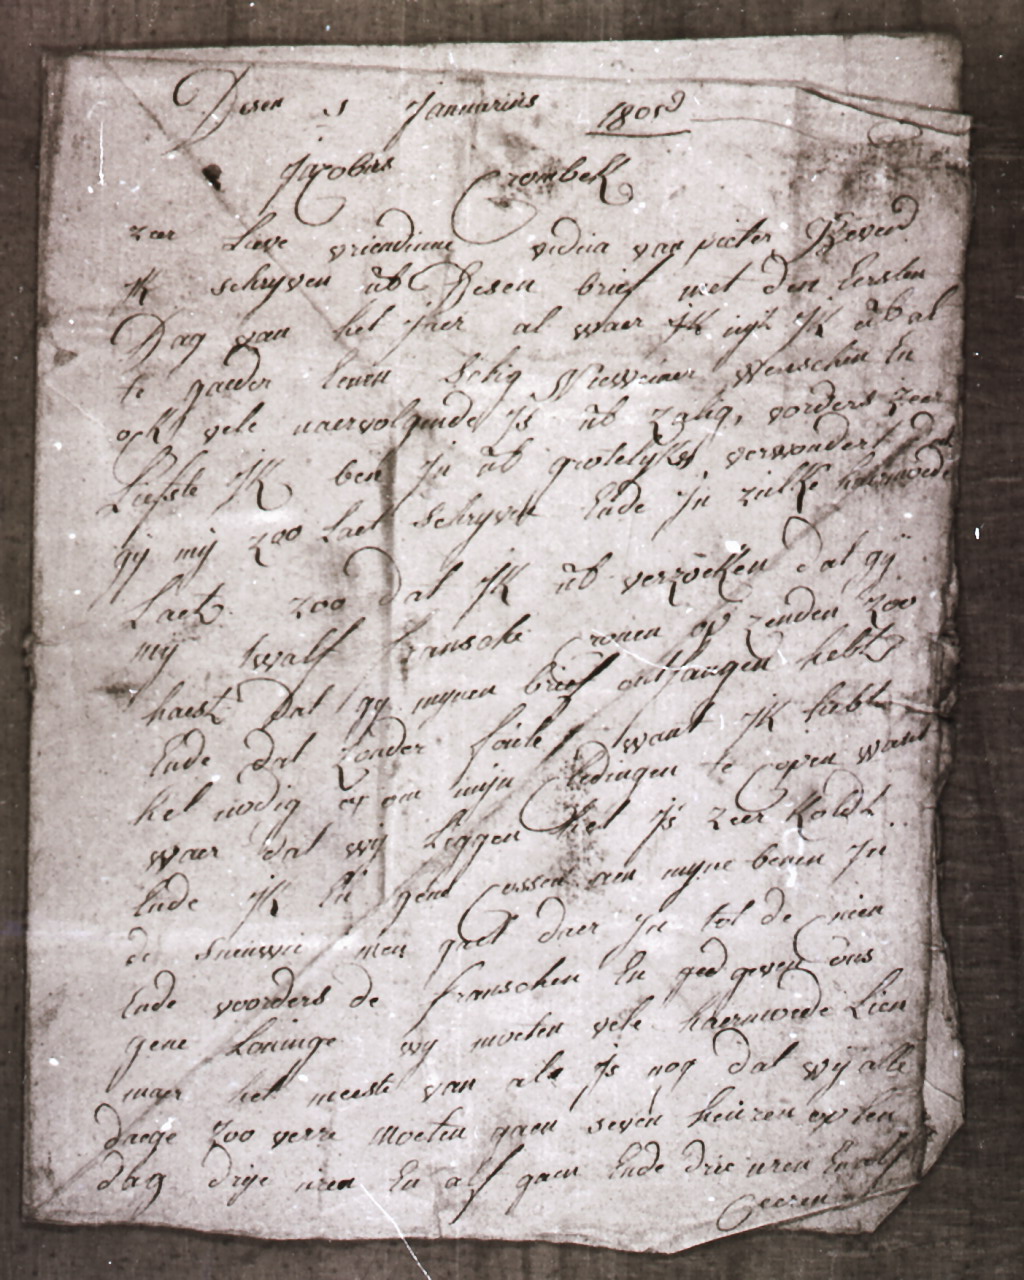 Desen 1 Januarius 180
Jacobus Crombek
zeer Lieve vriendinne vidua van pieter
JK schryven ub Desen brief met den Eersten
Dag van het Jaer al waer JK uyt JK ub al
te gaeder Eenen Selig Nieuwiaer wenschin En
ock vele naervolgende Js ub zalig, vorders zeer
Liefste JK ben Jn ub grotelykx verwondert dat
gy mij zoo Laet schryven Ende Jn zulke haermoede
Laet zoo dat JK ub verzoeken dat gÿ
mij twalf fransche Cronen op zenden zoo
haest Dat gy mynen brief ontfangen hebt
Ende dat zonder faiele want JK hebt
het nodig om mijn Cledingen te Copen want
waer dat wy Liggen het Js zeer koldt
Ende JK En hene Cossen aen myne benen Jn
de sneuwe men gaet daer Jn tot de Cnien
Ende voorders de franschen En ged geven ons
gene Loninge wy moeten vele haermoede Lien
maer het meeste van ale Js nog dat wij alle
daege zoo verre moeten gaen seven heuren op Een
dag drije uren En alf gaen Ende drie uren En alf
Ceeren